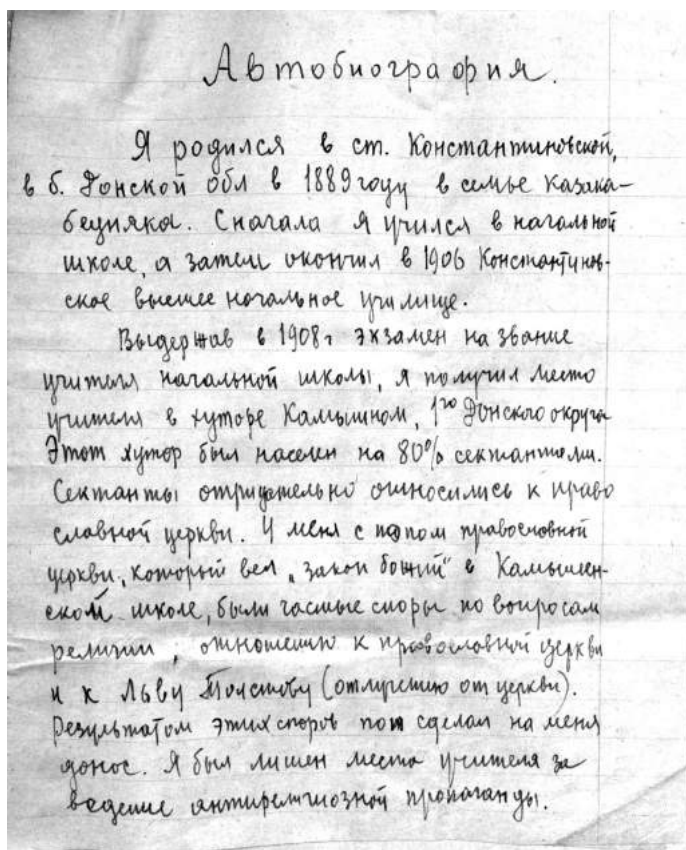 Автобиография.
Я родился в ст. Константиновской,
в б. Донской обл в 1889 году в семье казака-
бедняка. Сначала я учился в начальной
школе, а затем окончил в 1906 Константинов-
ское высшее начальное училище.
Выдержав в 1908 г экзамен на звание
учителя начальной школы, я получил место
учителя в хуторе Камышном, 1го Донского округа
Этот хутор был населен на 80% сектантами.
Сектанты отрицательно относились к право
славной церкви. У меня с попом православной
церкви, который вел „закон божий" в Камышен-
ской школе, были частые споры по вопросам
религии, отношению к православной церкви
и к Льву Толстому (отлучению от церкви).
Результатом этих споров поп сделал на меня
донос. Я был лишен места учителя за
ведение антирелигиозной пропаганды.